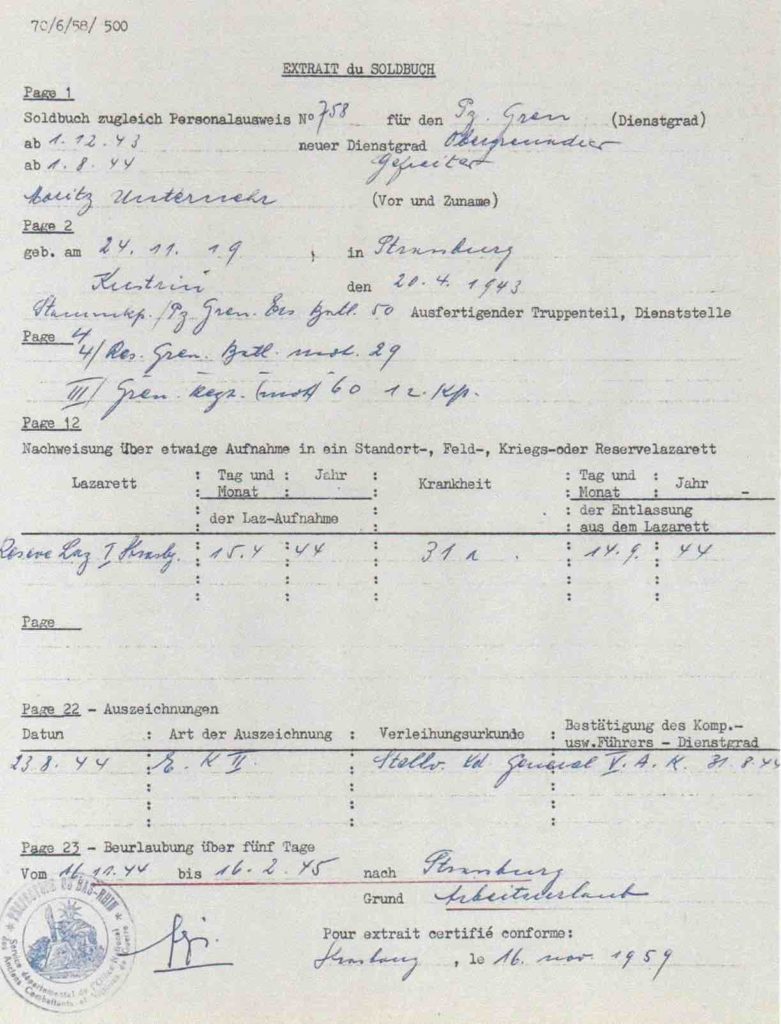 70/6/58/ 500
EXTRAIT du SOLDBUCH
Page 1
Soldbuch zugleich Personalausweis N° 758 für den Pz. Gren (Dienstgrad)
ab 1.12.43 neuer Dienstgrad Obergrenadier
ab 1.8.44 Gefreiter
Moritz Unternehr (Vor und Zuname)
Page 2
geb. am 24. 11. 19 , in Strassburg
Küstrin den 20.4.1943
Stammkp./Pz. Gren. Ers Batl. 50 Ausfertigender Truppenteil, Dienststelle
Page 4
4/Res. Gren. Batl. mot. 29
III/ Gren. Regt. (mot) 60 12. Kp.
Page 12
Nachweisung über etwaige Aufnahme in ein Standort-, Feld-, Kriegs-oder Reservelazarett
Lazarett : Tag und : Jahr : Krankheit : Tag und : Jahr
: Monat : : : Monat : -
: der Laz-Aufnahme : der Entlassung
: aus dem Lazarett
Reserve Laz I Strasbg. : 15.4 : 44 31 a . : 14.9. : 44
Page
Page 22 - Auszeichnungen
Datun : Art der Auszeichnung : Verleihungsurkunde : Bestätigung des Komp.-
usw.Führers - Dienstgrad
23 8. 44 : E. K II : Stellv. Kd General V. A. K. 31.8.44
Page 23 - Beurlaubung über fünf Tage
Vom 16.11.44 bis 16.2.45 nach Strassburg
Grund Arbeitsurlaub
Pour extrait certifié conforme:
Strasbourg , le 16. nov. 1959
PREFECTURE DU BAS-RHIN
Service départemental de l'Office National
des Anciens Combattants et Victimes de Guerre